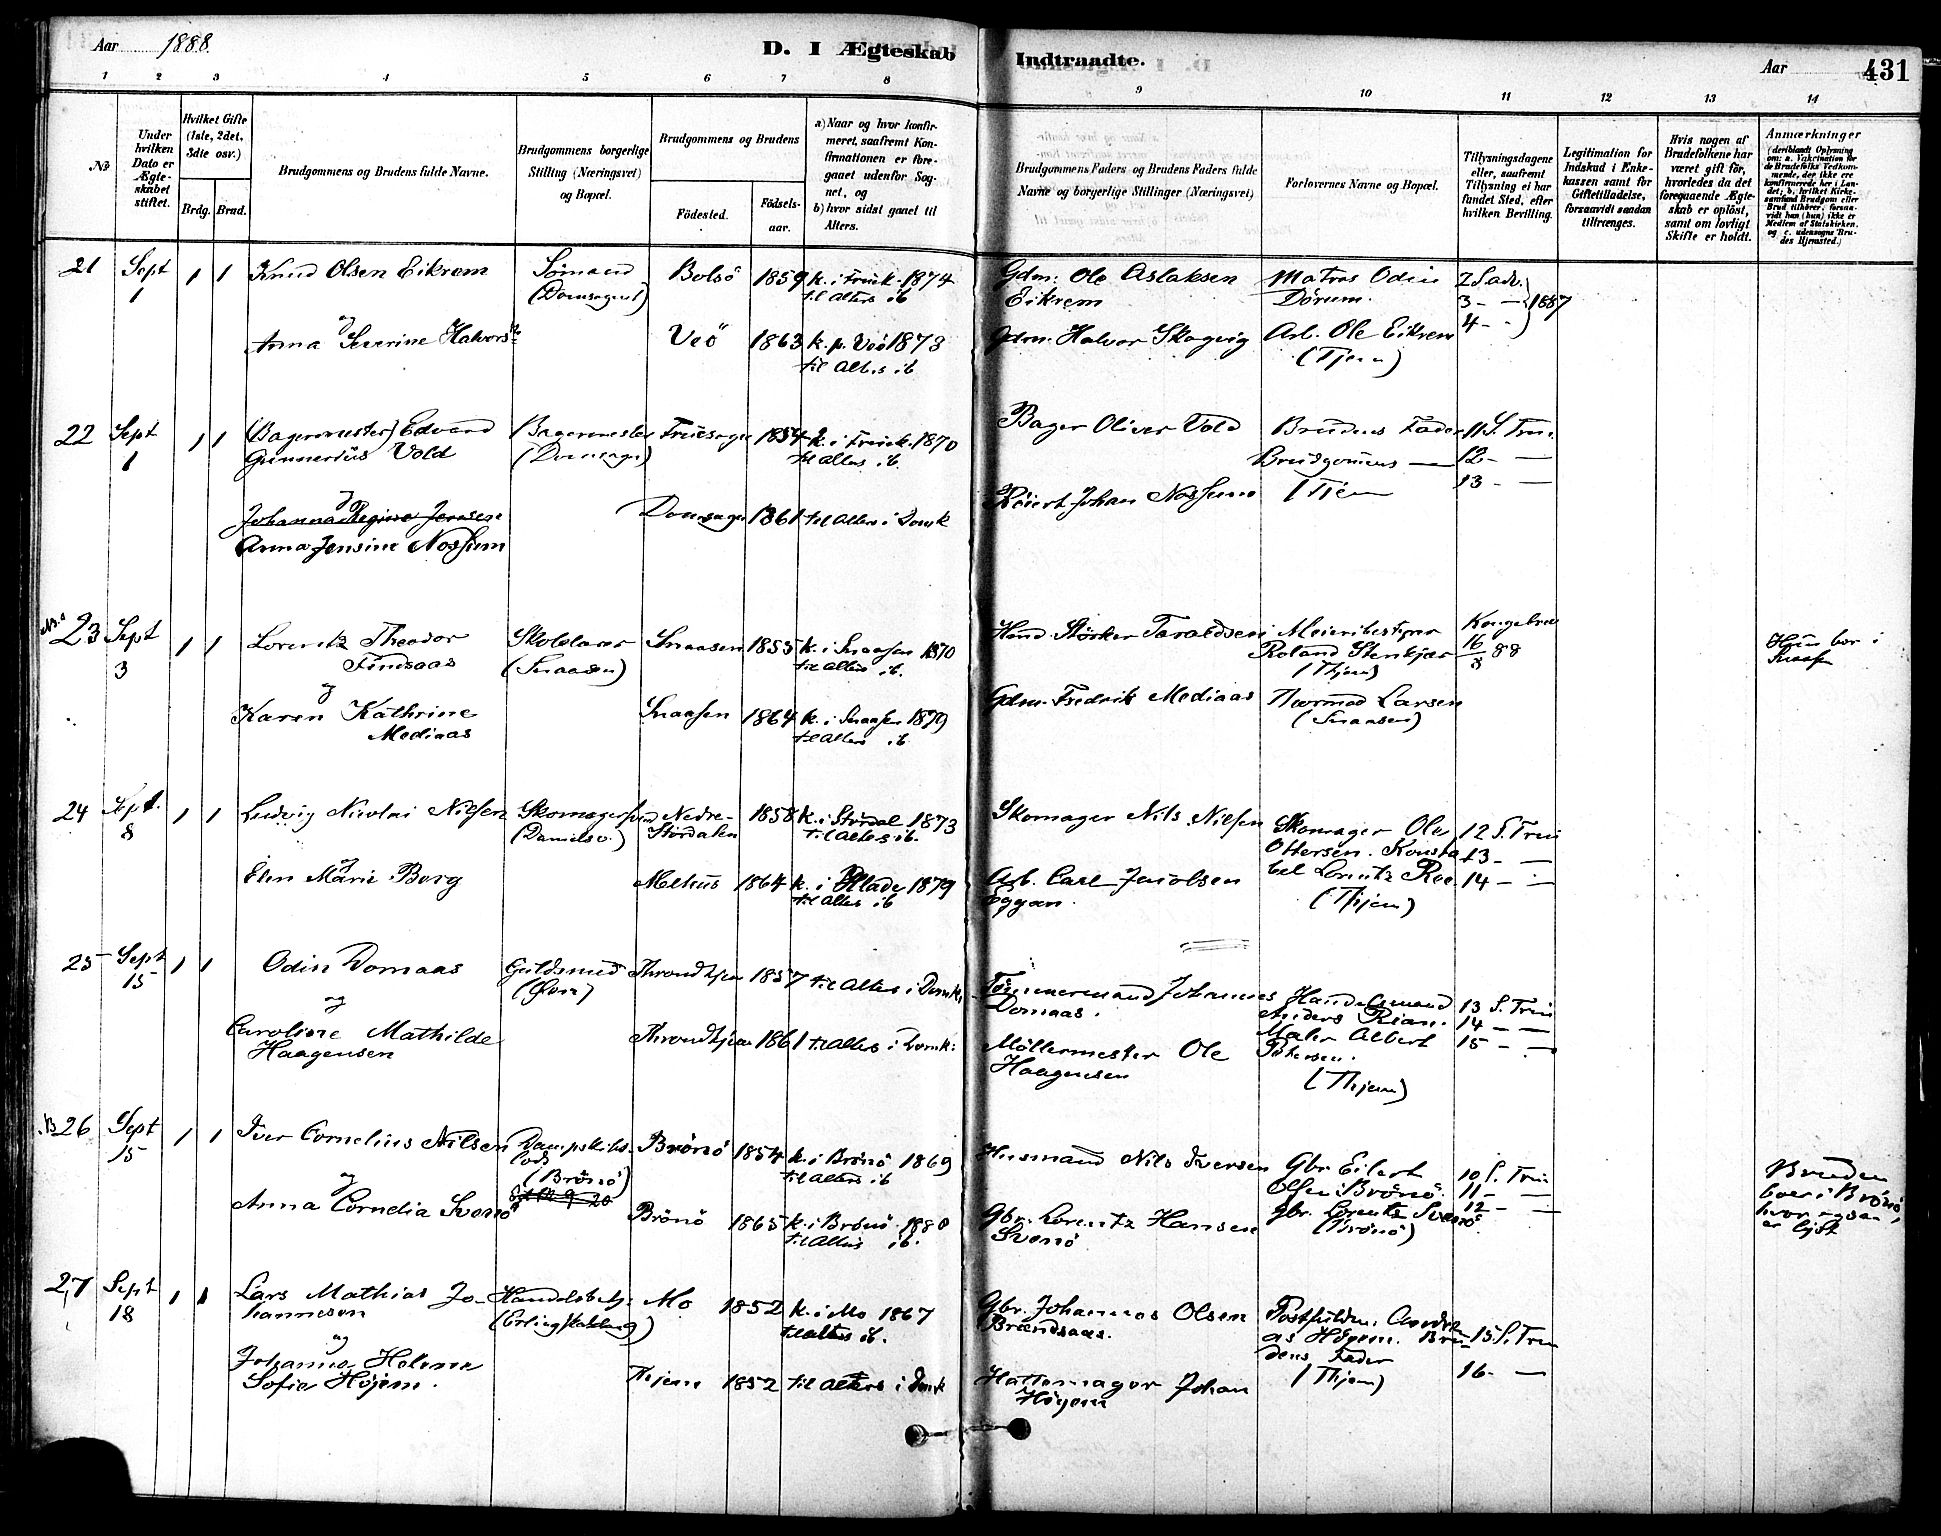 Aar 1888.
D. I Ægteskab Indtraadte.
Aar 431
1 2 3 4 5 6 7 8 9 10 11 12 13 14
No
Under hvilken Dato er Ægteskabet stiftet.
Hvilket Gifte (1ste, 2det, 3die osv.)
Brdg. Brud.
Brudgommens og Brudens fulde Navne.
Brudgommens borgerlige Stilling (Næringsvei) og Bopæl.
Brudgommens og Brudens
Födested. Födselsaar.
a) Naar og hvor konfirmeret, saafremt Konfirmationen er foregaaet udenfor Sognet, og
b) hvor sidst gaaet til Alters.
Brudgommens Faders og Brudens Faders fulde Navne og borgerlige Stillinger (Næringsvei)
Forlovernes Navne og Bopæl.
Tillysningsdagene eller, saafremt Tillysning ei har fundet Sted, efter hvilken Bevilling.
Legitimation for Indskud i Enkekassen samt for Giftetilladelse, forsaavidt saadan tiltrænges.
Hvis nogen af Brudefolkene har været gift før, hvorledes da det foregaaende Ægteskab er oplöst, samt om lovligt Skifte er holdt.
Anmærkninger
21 Sept 1 1 1 Knud Olsen Eikrem Sömand (Domsognet) Bolsö 1859 k. i Fruek. 1874 til Alters ib
Gdm: Ole Aslaksen Eikrem Matros Odin Dörum. 2 S adv. 3 - — 4 - - 1887
og
Anna Severine Halvorsdr Veö 1863 k. p. Veö 1873 til Alters ib
Gdm. Halvor Skagvig Arb. Ole Eikrem (Tjem)
22 Sept 1 1 1 (Bagermester) Edvard Gunnerius Vold Bagermester (Domsogn) Fruesogn 1854 k. i Fruek. 1870 til Alters ib.
Bager Oliver Vold Brudens Fader Brudgomens — (Tjem 11 S. Trin. 12 - — 13 - —
og
Johanna Regine Jensen
Anna Jensine Nossum Domsogn 1861 til Alters i Domk
Johan Nossum
N.B. 23 Sept 3 1 1 Lorentz Theodor Finsaas Skolelærer (Snaasen) Snaasen 1855 k. i Snaasen 1870 til Alters ib.
Störker Taraldsen Meieribestyrer Roland Stenkjær (Thjem) Kongebrev 16/8 88
Hun bor i Snaasen
og
Karen Kathrine Mediaas Snaasen 1864 k. i Snaasen 1879 til Alters ib
Gdm. Fredrik Mediaas Normod Larsen (Snaasen)
24 Sept. 8 1 1 Ludvig Nicolai Nilsen Skomagersvend (Danielsv.) Nedre-Stördalen 1858 k. i Stördal 1873 til Alters ib.
Skomager Nils Nilsen Skomager Ole Ottersen. Konstabel Lorentz Roe (Thjem) 12 S. Trin 13 - — 14 - —
og
Elen Marie Berg Melhus 1864 k. i Hlade 1879 til Alters ib
Arb. Carl Jacobsen Eggan.
25 Sept 15 1 1 Odin Domaas Guldsmed (Øvre) Throndhjem 1857 til Alters i Domk.
Tömmermand Johannes Domaas. Handelsmand Anders Rian. Maler Albert Petersen. (Thjem) 13 S. Trin 14 - — 15 - —
og
Caroline Mathilde Haagensen Throndhjem 1861 til Alters i Domk:
Möllermester Ole Haagensen
NB 26 Sept 15 1 1 Iver Cornelius Nilsen Dampskibslods (Brönö) Brönö 1854 k. i Brönö 1869 til Alters ib
Husmand Nils Iversen Gbr Eilert Olsen i Brönö. gbr. Lorentz Svenö (Brönö) 10 S. Trin 11 - — 12 - —
Bruden boer i Brönö, hvor ogsaa er lyst
og
Anna Cornelia Svenö Brönö 1865 k. i Brönö 1880 til Alters ib.
Gbr. Lorentz Hansen Svenö
27 Sept 18 1 1 Lars Mathias Johannesen Handelsbetj. (Erling Skakkesg) Mo 1852 k. i Mo 1867 til alters ib.
Gbr. Johannes Olsen Brandsaas. Postfuldm. Andreas Höyem. Brudens Fader (Thjem) 15 S. Trin 16 - —
og
Johanna Helene Sofie Höjem. Thjem 1852 til alters i Domk
Hattemager Johan Höyem